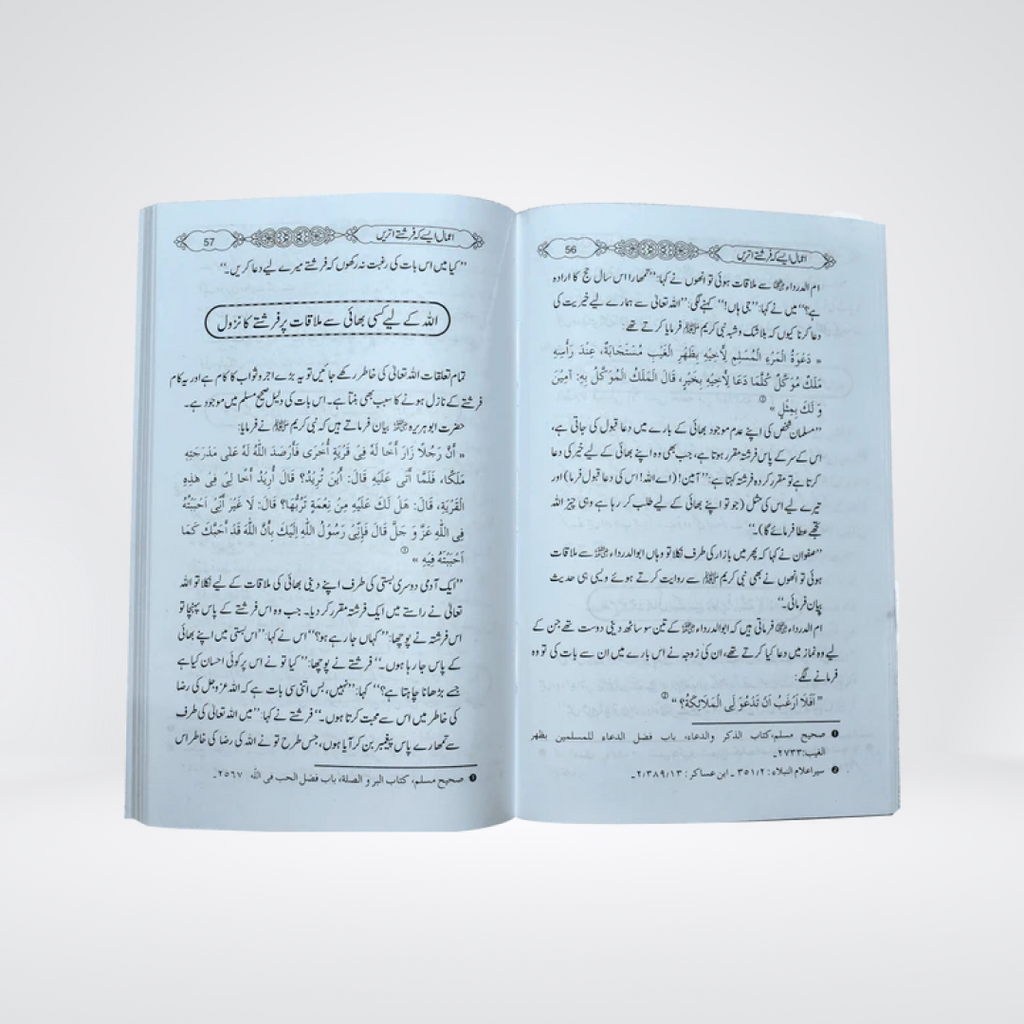 اعمال ایسے کہ فرشتے اتریں
56
ام الدرداء رضی اللہ عنہا سے ملاقات ہوئی تو انھوں نے کہا: ’’تمھارا اس سال حج کا ارادہ
ہے؟‘‘ میں نے کہا: ’’جی ہاں!‘‘ کہنے لگی: ’’اللہ تعالیٰ سے ہمارے لیے خیریت کی
دعا کرنا کیوں کہ بلاشک و شبہ نبی کریم ﷺ فرمایا کرتے تھے
« دَعْوَةُ الْمَرْءِ الْمُسْلِمِ لِأَخِيْهِ بِظَهْرِ الْغَيْبِ مُسْتَجَابَةٌ، عِنْدَ رَأْسِهِ
مَلَكٌ مُوَكَّلٌ كُلَّمَا دَعَا لِأَخِيْهِ بِخَيْرٍ، قَالَ الْمَلَكُ الْمُوَكَّلُ بِهِ: آمِيْنَ
وَ لَكَ بِمِثْلٍ » ①
’’مسلمان شخص کی اپنے عدم موجود بھائی کے بارے میں دعا قبول کی جاتی ہے،
اس کے سر کے پاس فرشتہ مقرر ہوتا ہے، جب بھی وہ اپنے بھائی کے لیے خیر کی دعا
کرتا ہے تو مقرر کردہ فرشتہ کہتا ہے: ’’آمین! (اے اللہ! اس کی دعا قبول فرما) اور
تیرے لیے اس کی مثل (جو تو اپنے بھائی کے لیے طلب کر رہا ہے وہی چیز اللہ
تجھے عطا فرمائے گا)۔‘‘
’’صفوان نے کہا کہ پھر میں بازار کی طرف نکلا تو وہاں ابوالدرداء رضی اللہ عنہ سے ملاقات
ہوئی تو انھوں نے بھی نبی کریم ﷺ سے روایت کرتے ہوئے ویسی ہی حدیث
بیان فرمائی۔‘‘
ام الدرداء رضی اللہ عنہا فرماتی ہیں کہ ابوالدرداء رضی اللہ عنہ کے تین سو ساٹھ دینی دوست تھے جن کے
لیے وہ نماز میں دعا کیا کرتے تھے، ان کی زوجہ نے اس بارے میں ان سے بات کی تو وہ
فرمانے لگے:
" اَفَلَا اَرْغَبُ اَنْ تَدْعُوَ لِي الْمَلَائِكَةُ؟ " ②
❶ صحیح مسلم، کتاب الذکر والدعاء، باب فضل الدعاء للمسلمین بظهر
الغیب: ٢٧٣٣۔
❷ سیر اعلام النبلاء: ٣٥١/٢ ۔ ابن عساکر: ٢/٣٨٩/١٣ ۔
اعمال ایسے کہ فرشتے اتریں
57
’’کیا میں اس بات کی رغبت نہ رکھوں کہ فرشتے میرے لیے دعا کریں۔‘‘
اللہ کے لیے کسی بھائی سے ملاقات پر فرشتے کا نزول
تمام تعلقات اللہ تعالیٰ کی خاطر رکھے جائیں تو یہ بڑے اجر و ثواب کا کام ہے اور یہ کام
فرشتے کے نازل ہونے کا سبب بھی بنتا ہے۔ اس بات کی دلیل صحیح مسلم میں موجود ہے۔
حضرت ابوہریرہ رضی اللہ عنہ بیان فرماتے ہیں کہ نبی کریم ﷺ نے فرمایا:
« أَنَّ رَجُلًا زَارَ أَخًا لَهُ فِي قَرْيَةٍ أُخْرَى فَأَرْصَدَ اللّٰهُ لَهُ عَلَى مَدْرَجَتِهِ
مَلَكًا، فَلَمَّا أَتَى عَلَيْهِ قَالَ: أَيْنَ تُرِيْدُ؟ قَالَ أُرِيْدُ أَخًا لِي فِي هَذِهِ
الْقَرْيَةِ، قَالَ: هَلْ لَكَ عَلَيْهِ مِنْ نِعْمَةٍ تَرُبُّهَا؟ قَالَ: لَا غَيْرَ أَنِّي أَحْبَبْتُهُ
فِي اللّٰهِ عَزَّ وَ جَلَّ قَالَ فَإِنِّي رَسُوْلُ اللّٰهِ إِلَيْكَ بِأَنَّ اللّٰهَ قَدْ أَحَبَّكَ كَمَا
أَحْبَبْتَهُ فِيْهِ » ①
’’ایک آدمی دوسری بستی کی طرف اپنے دینی بھائی کی ملاقات کے لیے نکلا تو اللہ
تعالیٰ نے راستے میں ایک فرشتہ مقرر کر دیا۔ جب وہ اس فرشتے کے پاس پہنچا تو
اس فرشتہ نے پوچھا: ’’کہاں جا رہے ہو؟‘‘ اس نے کہا: ’’اس بستی میں اپنے بھائی
کے پاس جا رہا ہوں۔‘‘ فرشتے نے پوچھا: ’’کیا تو نے اس پر کوئی احسان کیا ہے
جسے بڑھانا چاہتا ہے؟‘‘ کہا: ’’نہیں، بس اتنی سی بات ہے کہ اللہ عزوجل کی رضا
کی خاطر میں اس سے محبت کرتا ہوں۔‘‘ فرشتے نے کہا: ’’میں اللہ تعالیٰ کی طرف
سے تمھارے پاس پیغمبر بن کر آیا ہوں، جس طرح تو نے اللہ کی رضا کی خاطر اس
❶ صحیح مسلم، کتاب البر و الصلة، باب فضل الحب فی اللّٰه ٢٥٦٧ ۔